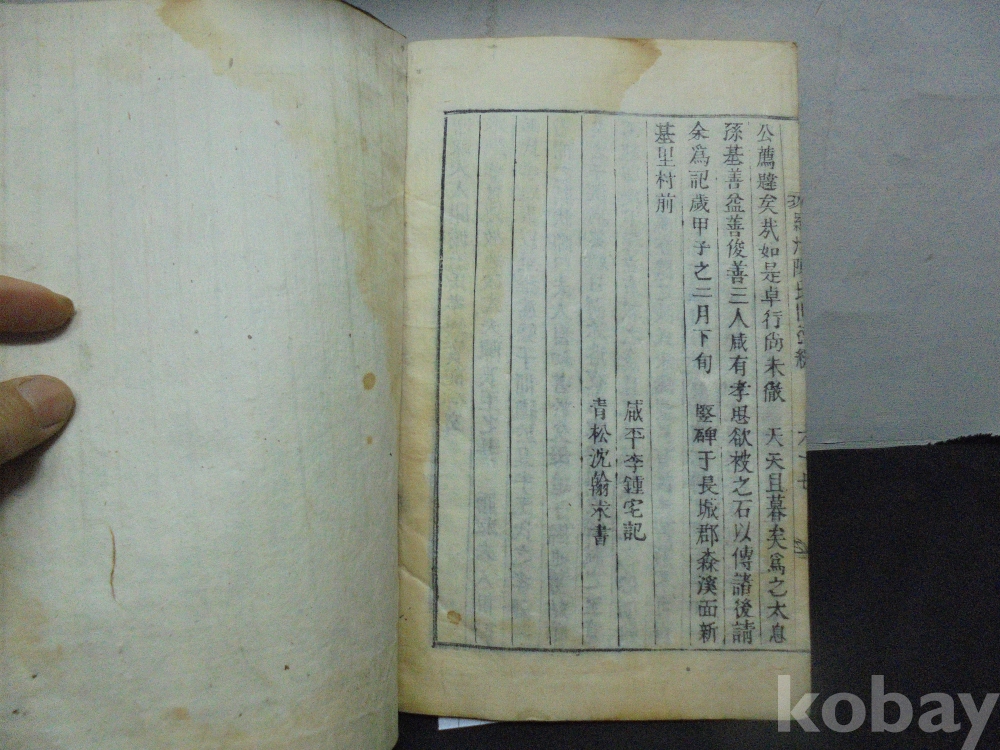 公薦蹕矣哉如是卓行尙未徹 天天且暮矣爲之太息
孫基善益善俊善三人咸有孝思欲被之石以傳諸後請
余爲記歲甲子之二月下旬 竪碑于長城郡森溪面新
基里村前
咸平李鍾宅記
靑松沈翰求書
kobay